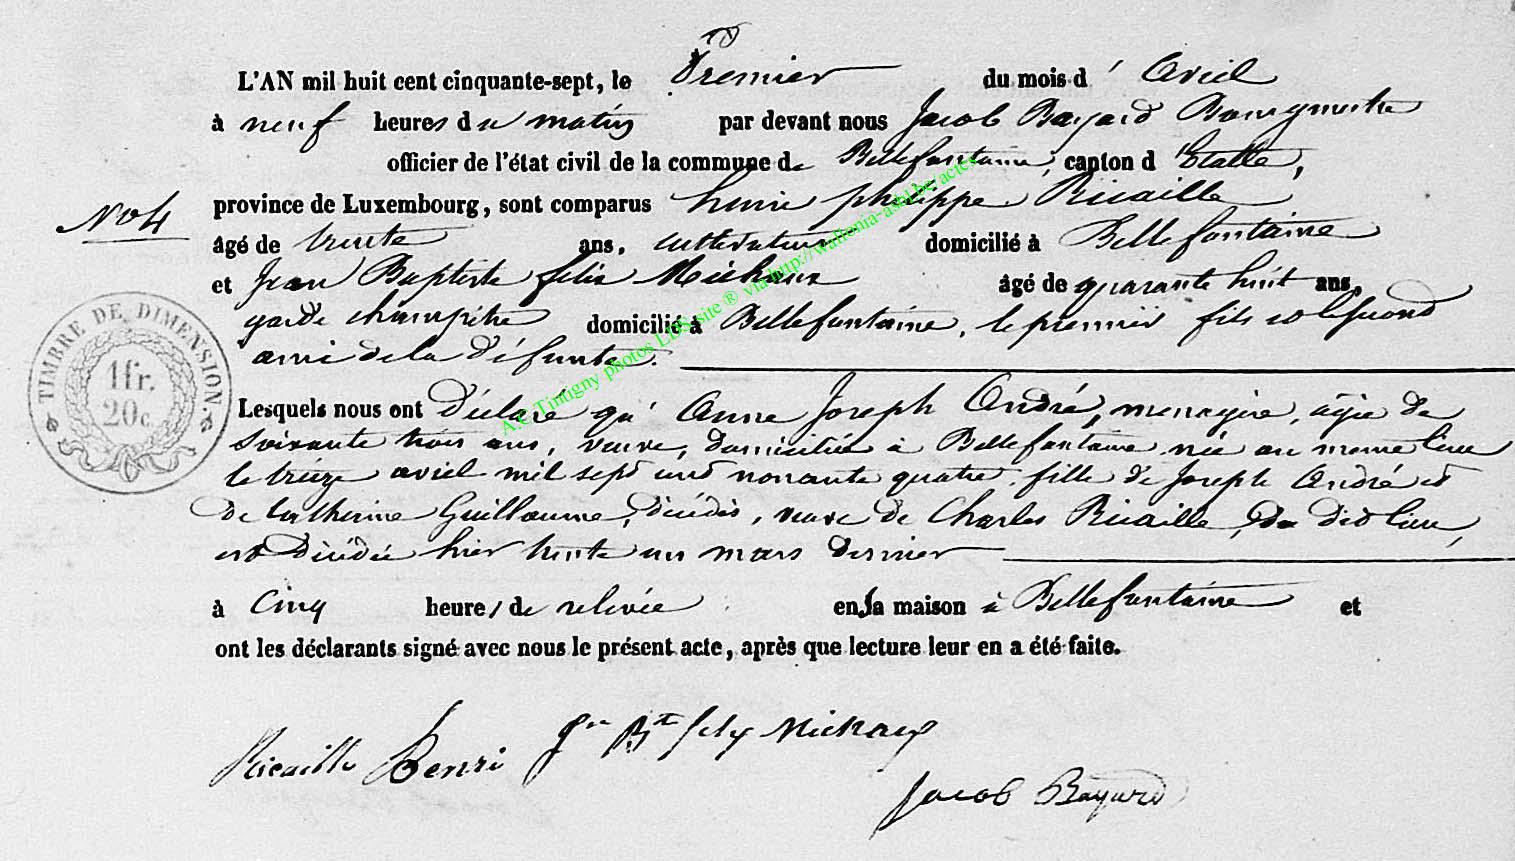 L'AN mil huit cent cinquante-sept, le Premier du mois d'Avril
à neuf heures du matin par devant nous Jacob Bayard Bourgmestre
officier de l'état civil de la commune de Bellefontaine, canton d'Etalle,
No 4
province de Luxembourg, sont comparus henri philippe Ricaille
âgé de trente ans, cultivateur domicilié à Bellefontaine
et Jean Baptiste felix Michaux âgé de quarante huit ans,
garde champêtre domicilié à Bellefontaine, le premier fils et le second
ami de la défunte.
TIMBRE DE DIMENSION.
1 fr.
20 c.
Lesquels nous ont Déclaré qu'Anne Joseph André, menagère, âgée de
soixante trois ans, veuve, domiciliée à Bellefontaine née au meme lieu
le treize avril mil sept cent nonante quatre, fille de Joseph André et
de Catherine Guillaume, décédés, veuve de Charles Ricaille, du dit lieu,
est Décédée hier trente un mars dernier
à cinq heures de relevée en sa maison à Bellefontaine et
ont les déclarants signé avec nous le présent acte, après que lecture leur en a été faite.
Ricaille Henri Jn Bte felix Michaux
Jacob Bayard
A.C Tintigny photos LDS site ® via http://wallonia-asbl.be/actes